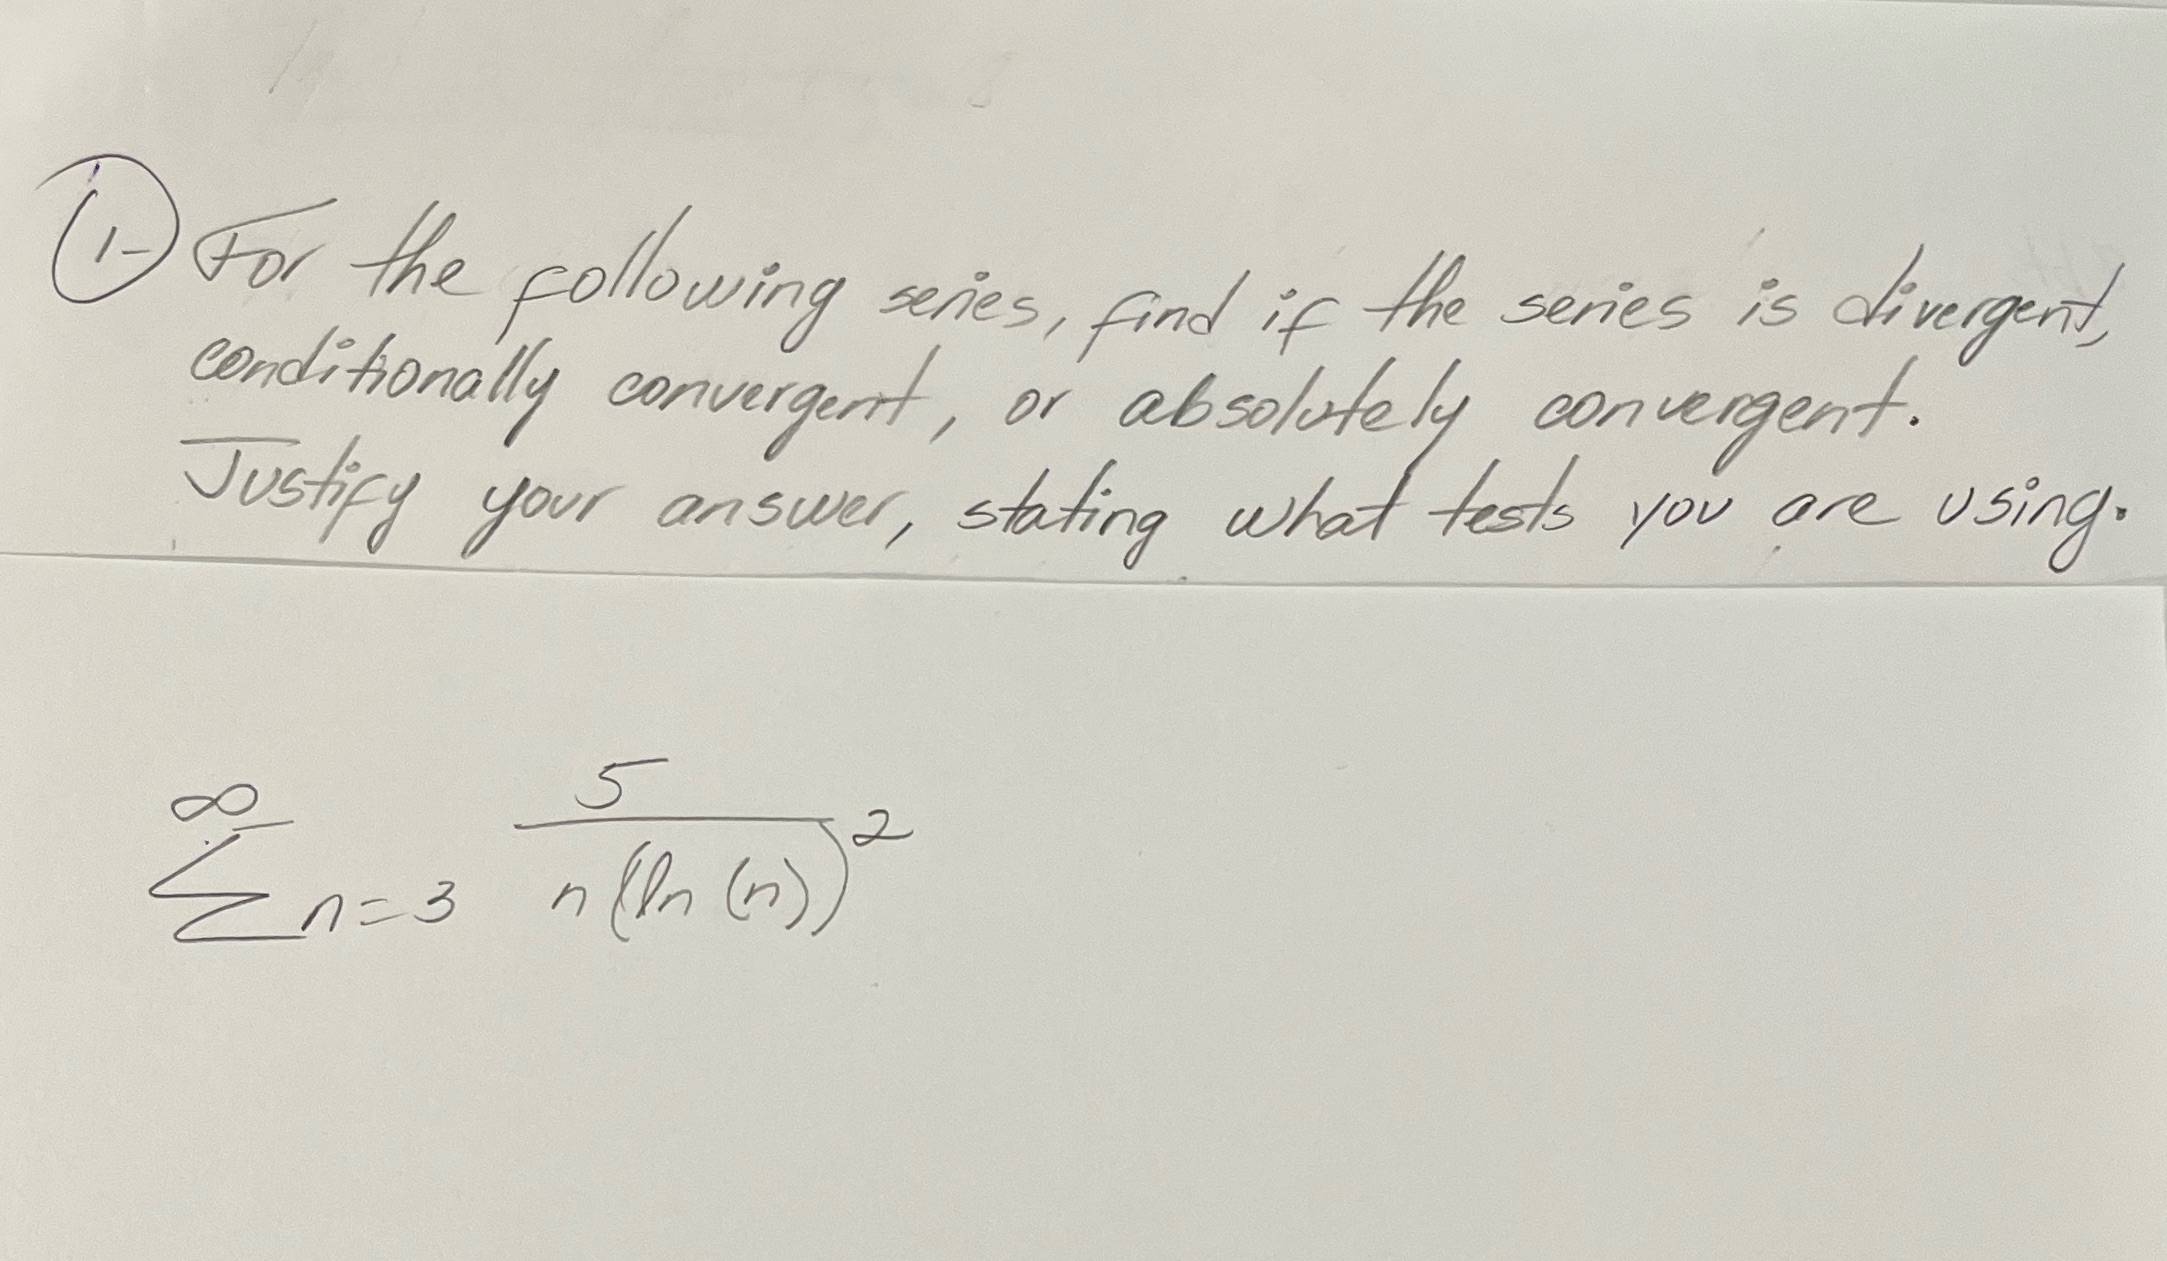 1- For the following series, find if the series is divergent,
conditionally convergent, or absolutely convergent.
Justify your answer, stating what tests you are using.
∞
Σ n=3 5/(n(ln(n))²)